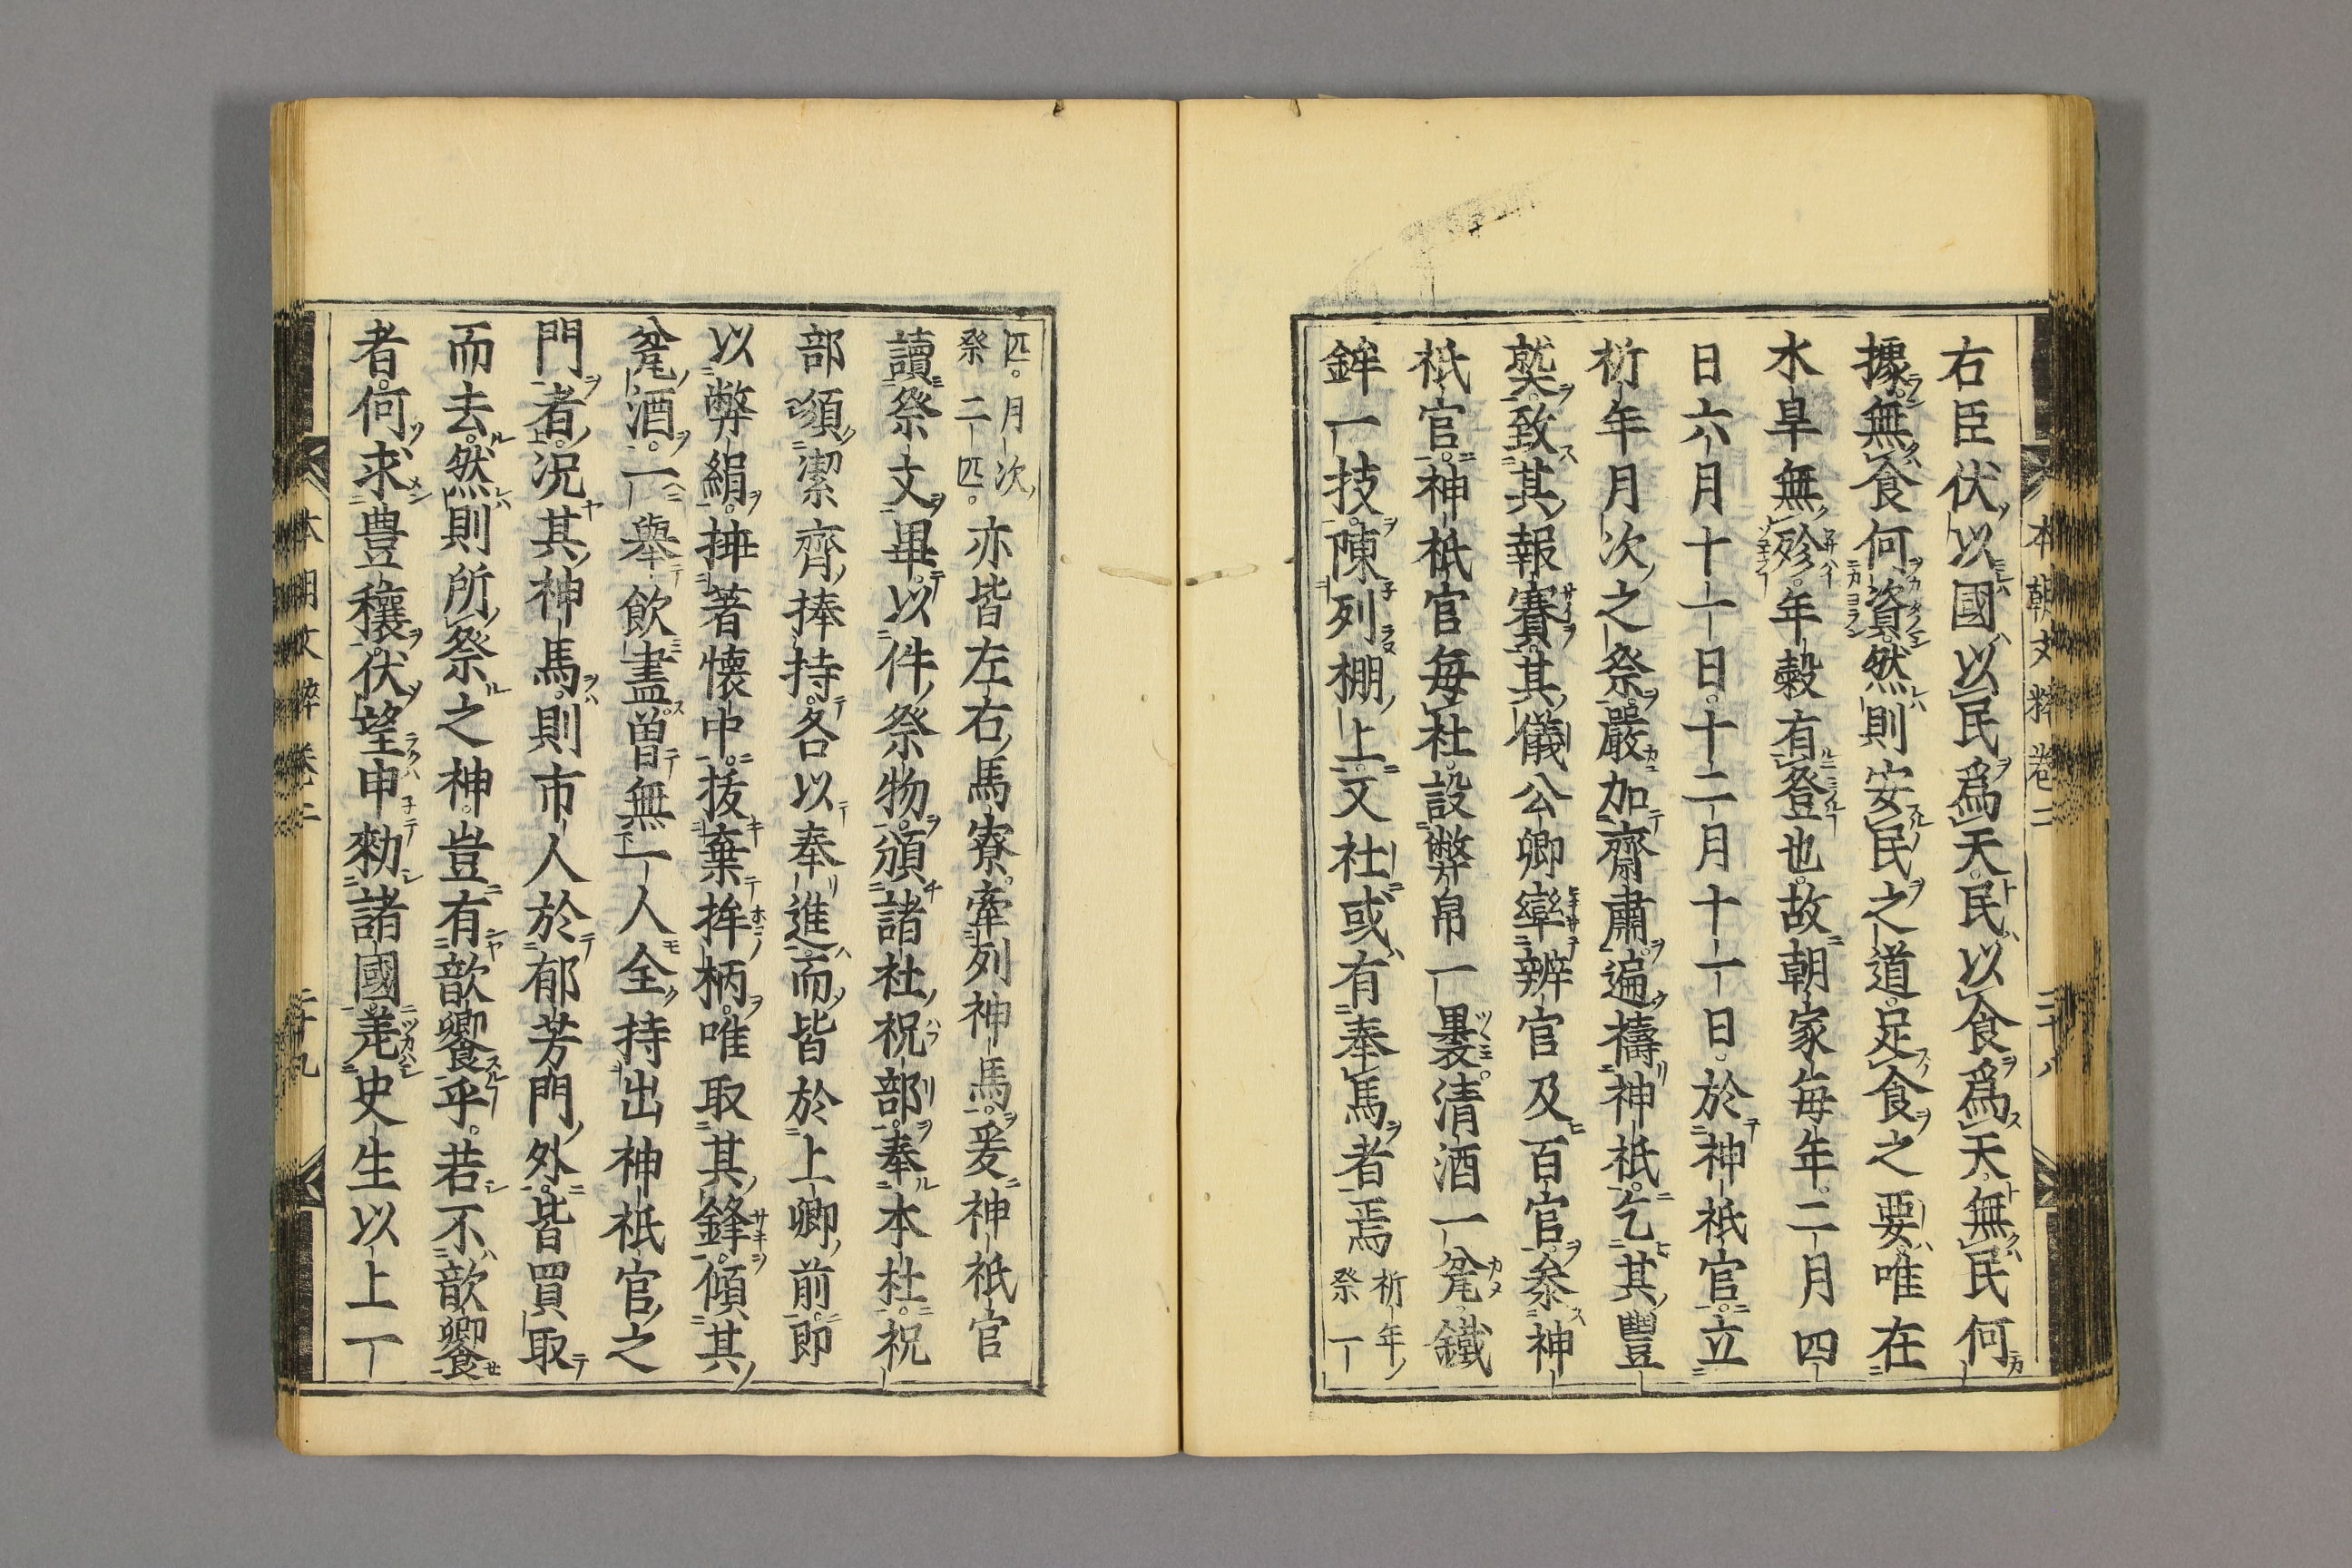 右臣伏以國以民爲天民以食爲天無民何
據無食何資然則安民之道足食之要唯在
水旱無殄年穀有登也故朝家毎年二月四
日六月十一日十二月十一日於神祇官立
祈年月次之祭嚴加齋肅遍禱神祇乞其豐
熟致其報賽其儀公卿率辨官及百官參神
祇官神祇官毎社設幣帛一裹清酒一瓮鐵
鉾一技陳列棚上又社或有奉馬者焉祈年
祭一
匹月次
祭二匹亦皆左右馬寮牽列神馬爰神祇官
讀祭文畢以件祭物頒諸社祝部奉本社祝
部須潔齊捧持各以奉進而皆於上卿前即
以弊絹揷著懷中拔棄鉾柄唯取其鋒傾其
瓮酒一擧飮盡曾無一人全持出神祇官之
門者況其神馬則市人於郁芳門外皆買取
而去然則所祭之神豈有歆饗乎若不歆饗
者何求豊穰伏望申勑諸國差史生以上一
本朝文粹卷二
三十八